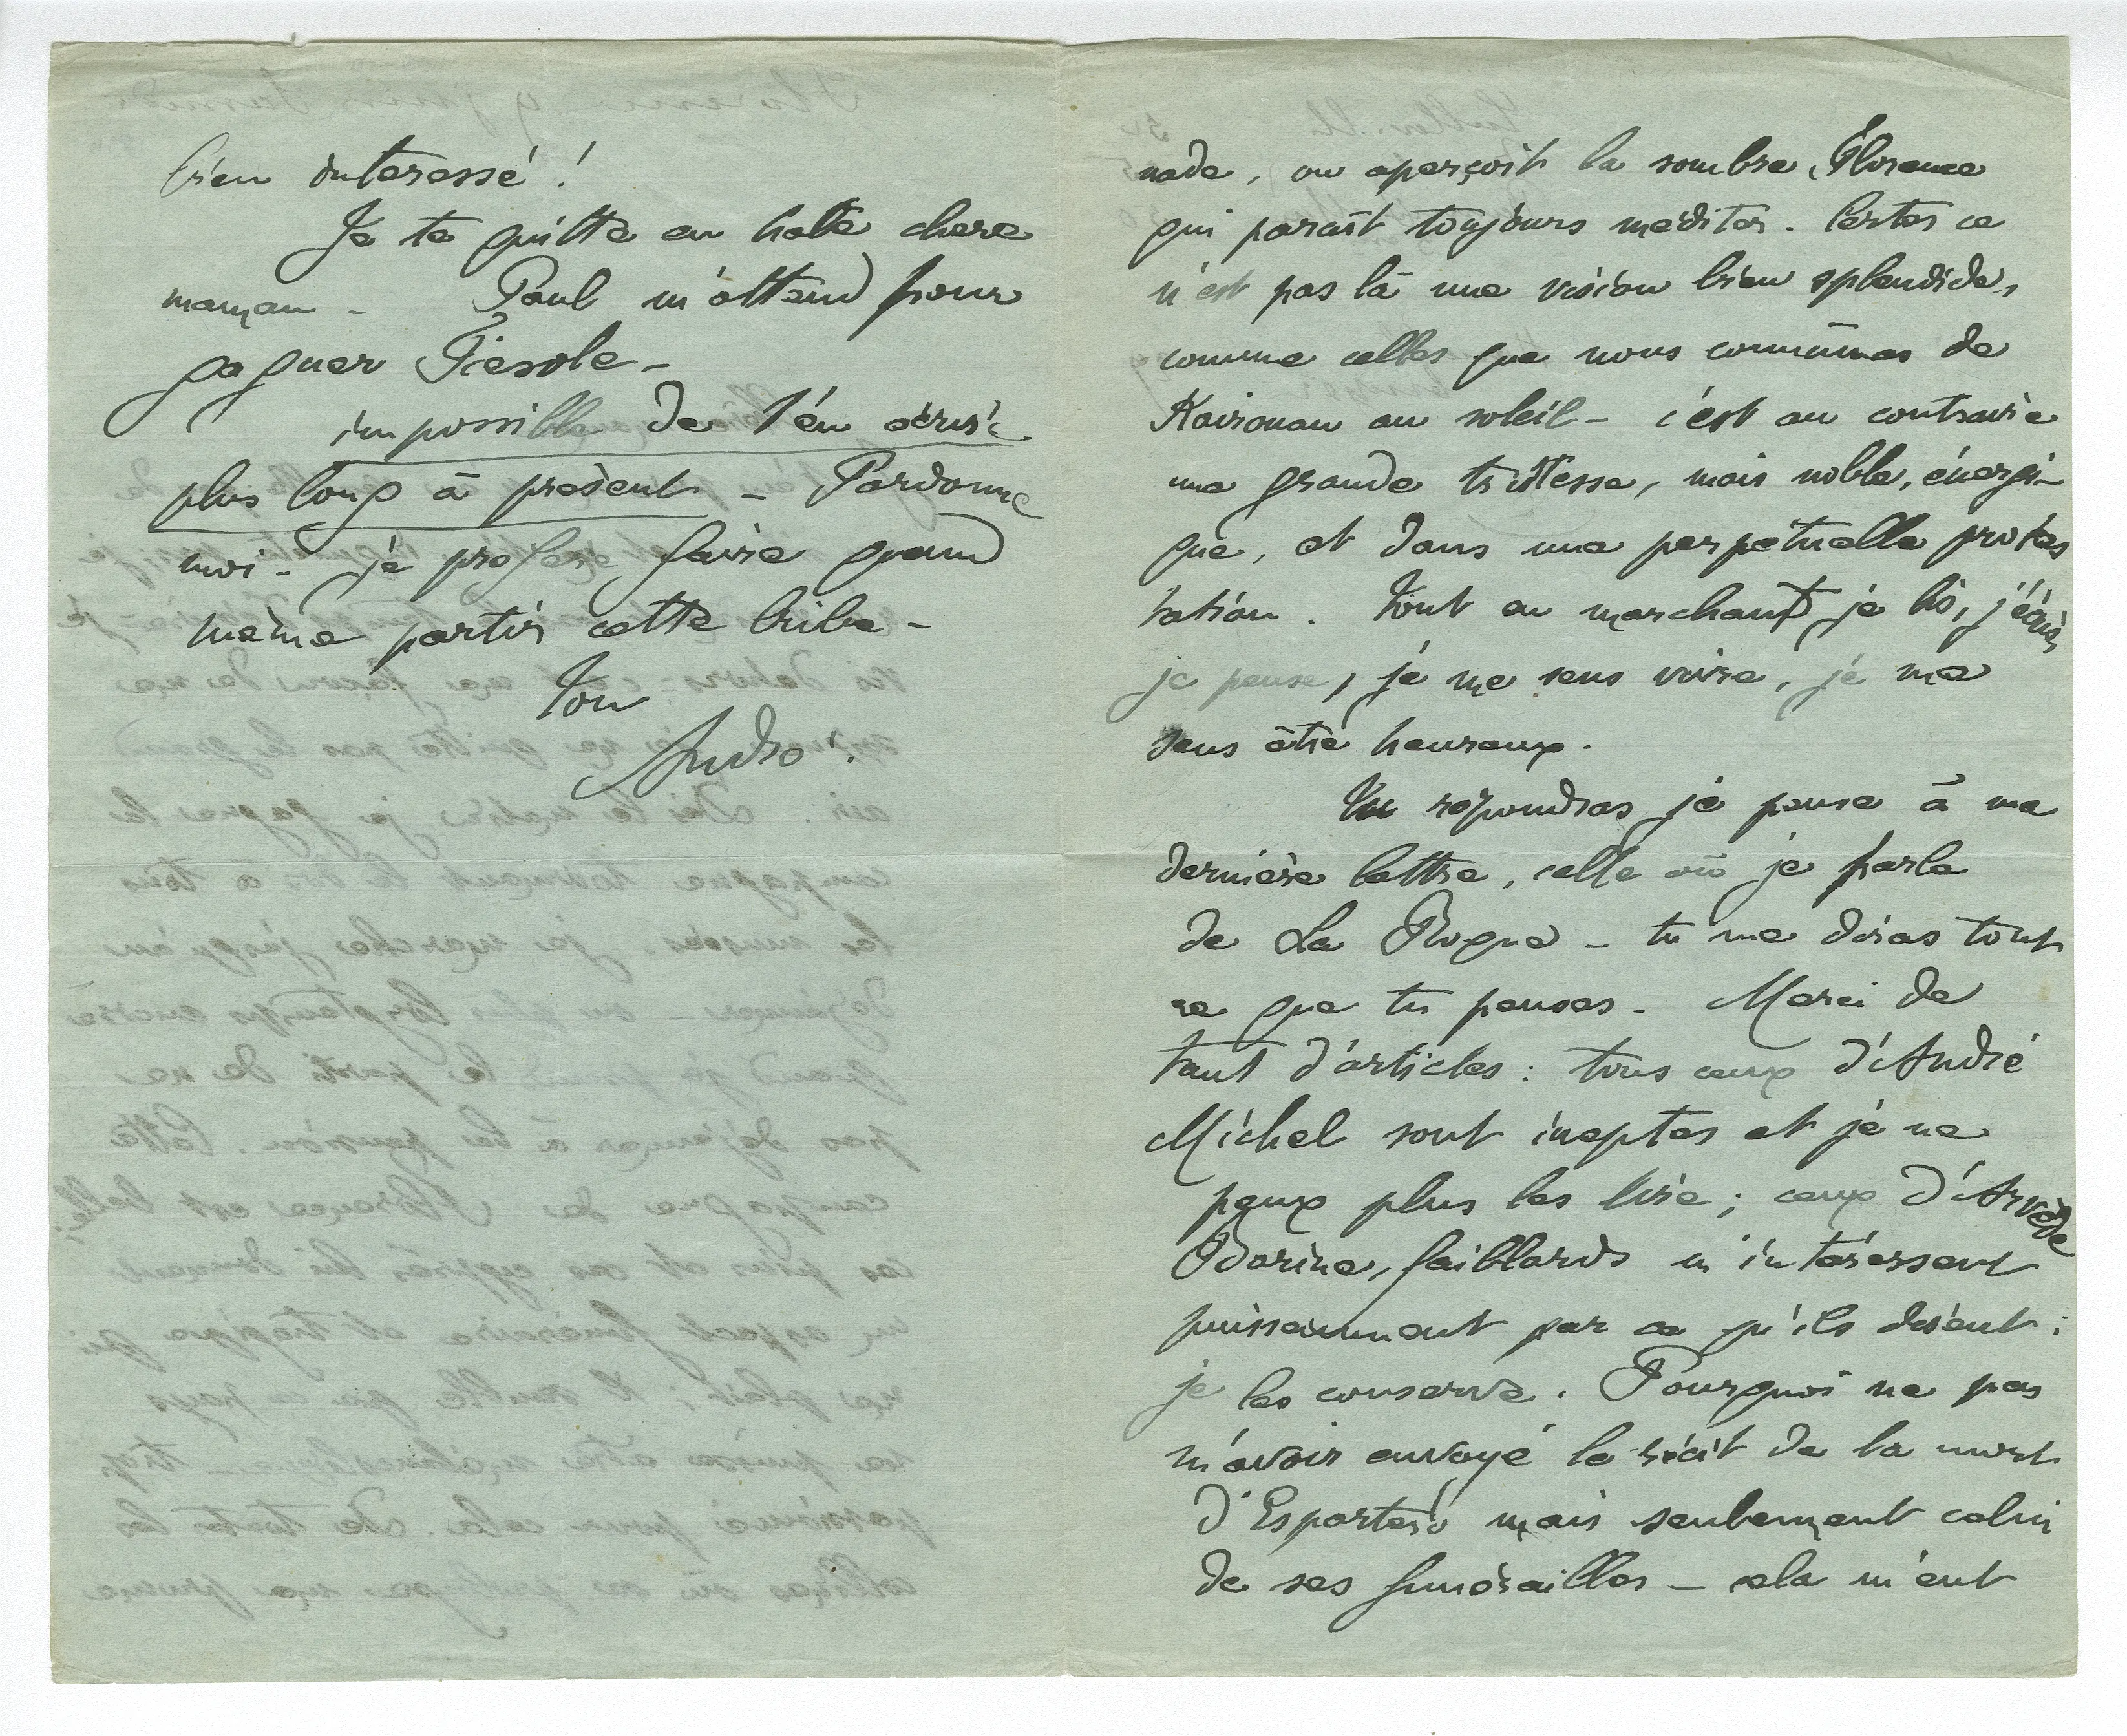 nade, on aperçoit la sombre Florence
qui parait toujours méditer. Certes ce
n'est pas là une vision bien splendide,
comme celles que nous connûmes de
Kairouan au soleil – c'est au contraire
une grande tristesse, mais noble, énergi-
que, et dans une perpétuelle protes
tation. Tout en marchant je lis, j'écris,
je pense, je me sens vivre, je me
sens être heureux.
Tu répondras je pense à ma
dernière lettre, celle où je parle
de La Roque – tu me diras tout
ce que tu penses. Merci de
tant d'articles : tous ceux d'André
Michel sont ineptes et je ne
peux plus les lire ; ceux d'Arvède
Barine, faiblards m'intéressent
puissamment par ce qu'ils disent :
je les conserve. Pourquoi ne pas
m'avoir envoyé le récit de la mort
d'Espartero mais seulement celui
de ses funérailles – cela m'eut
bien interessé !
Je te quitte en hate chere
maman – Paul m'attend pour
gagner Fiesole –
impossible de t'en écrire
plus long à présent – Pardonne
moi – je préfère faire quand
même partir cette bribe –
Ton
André.